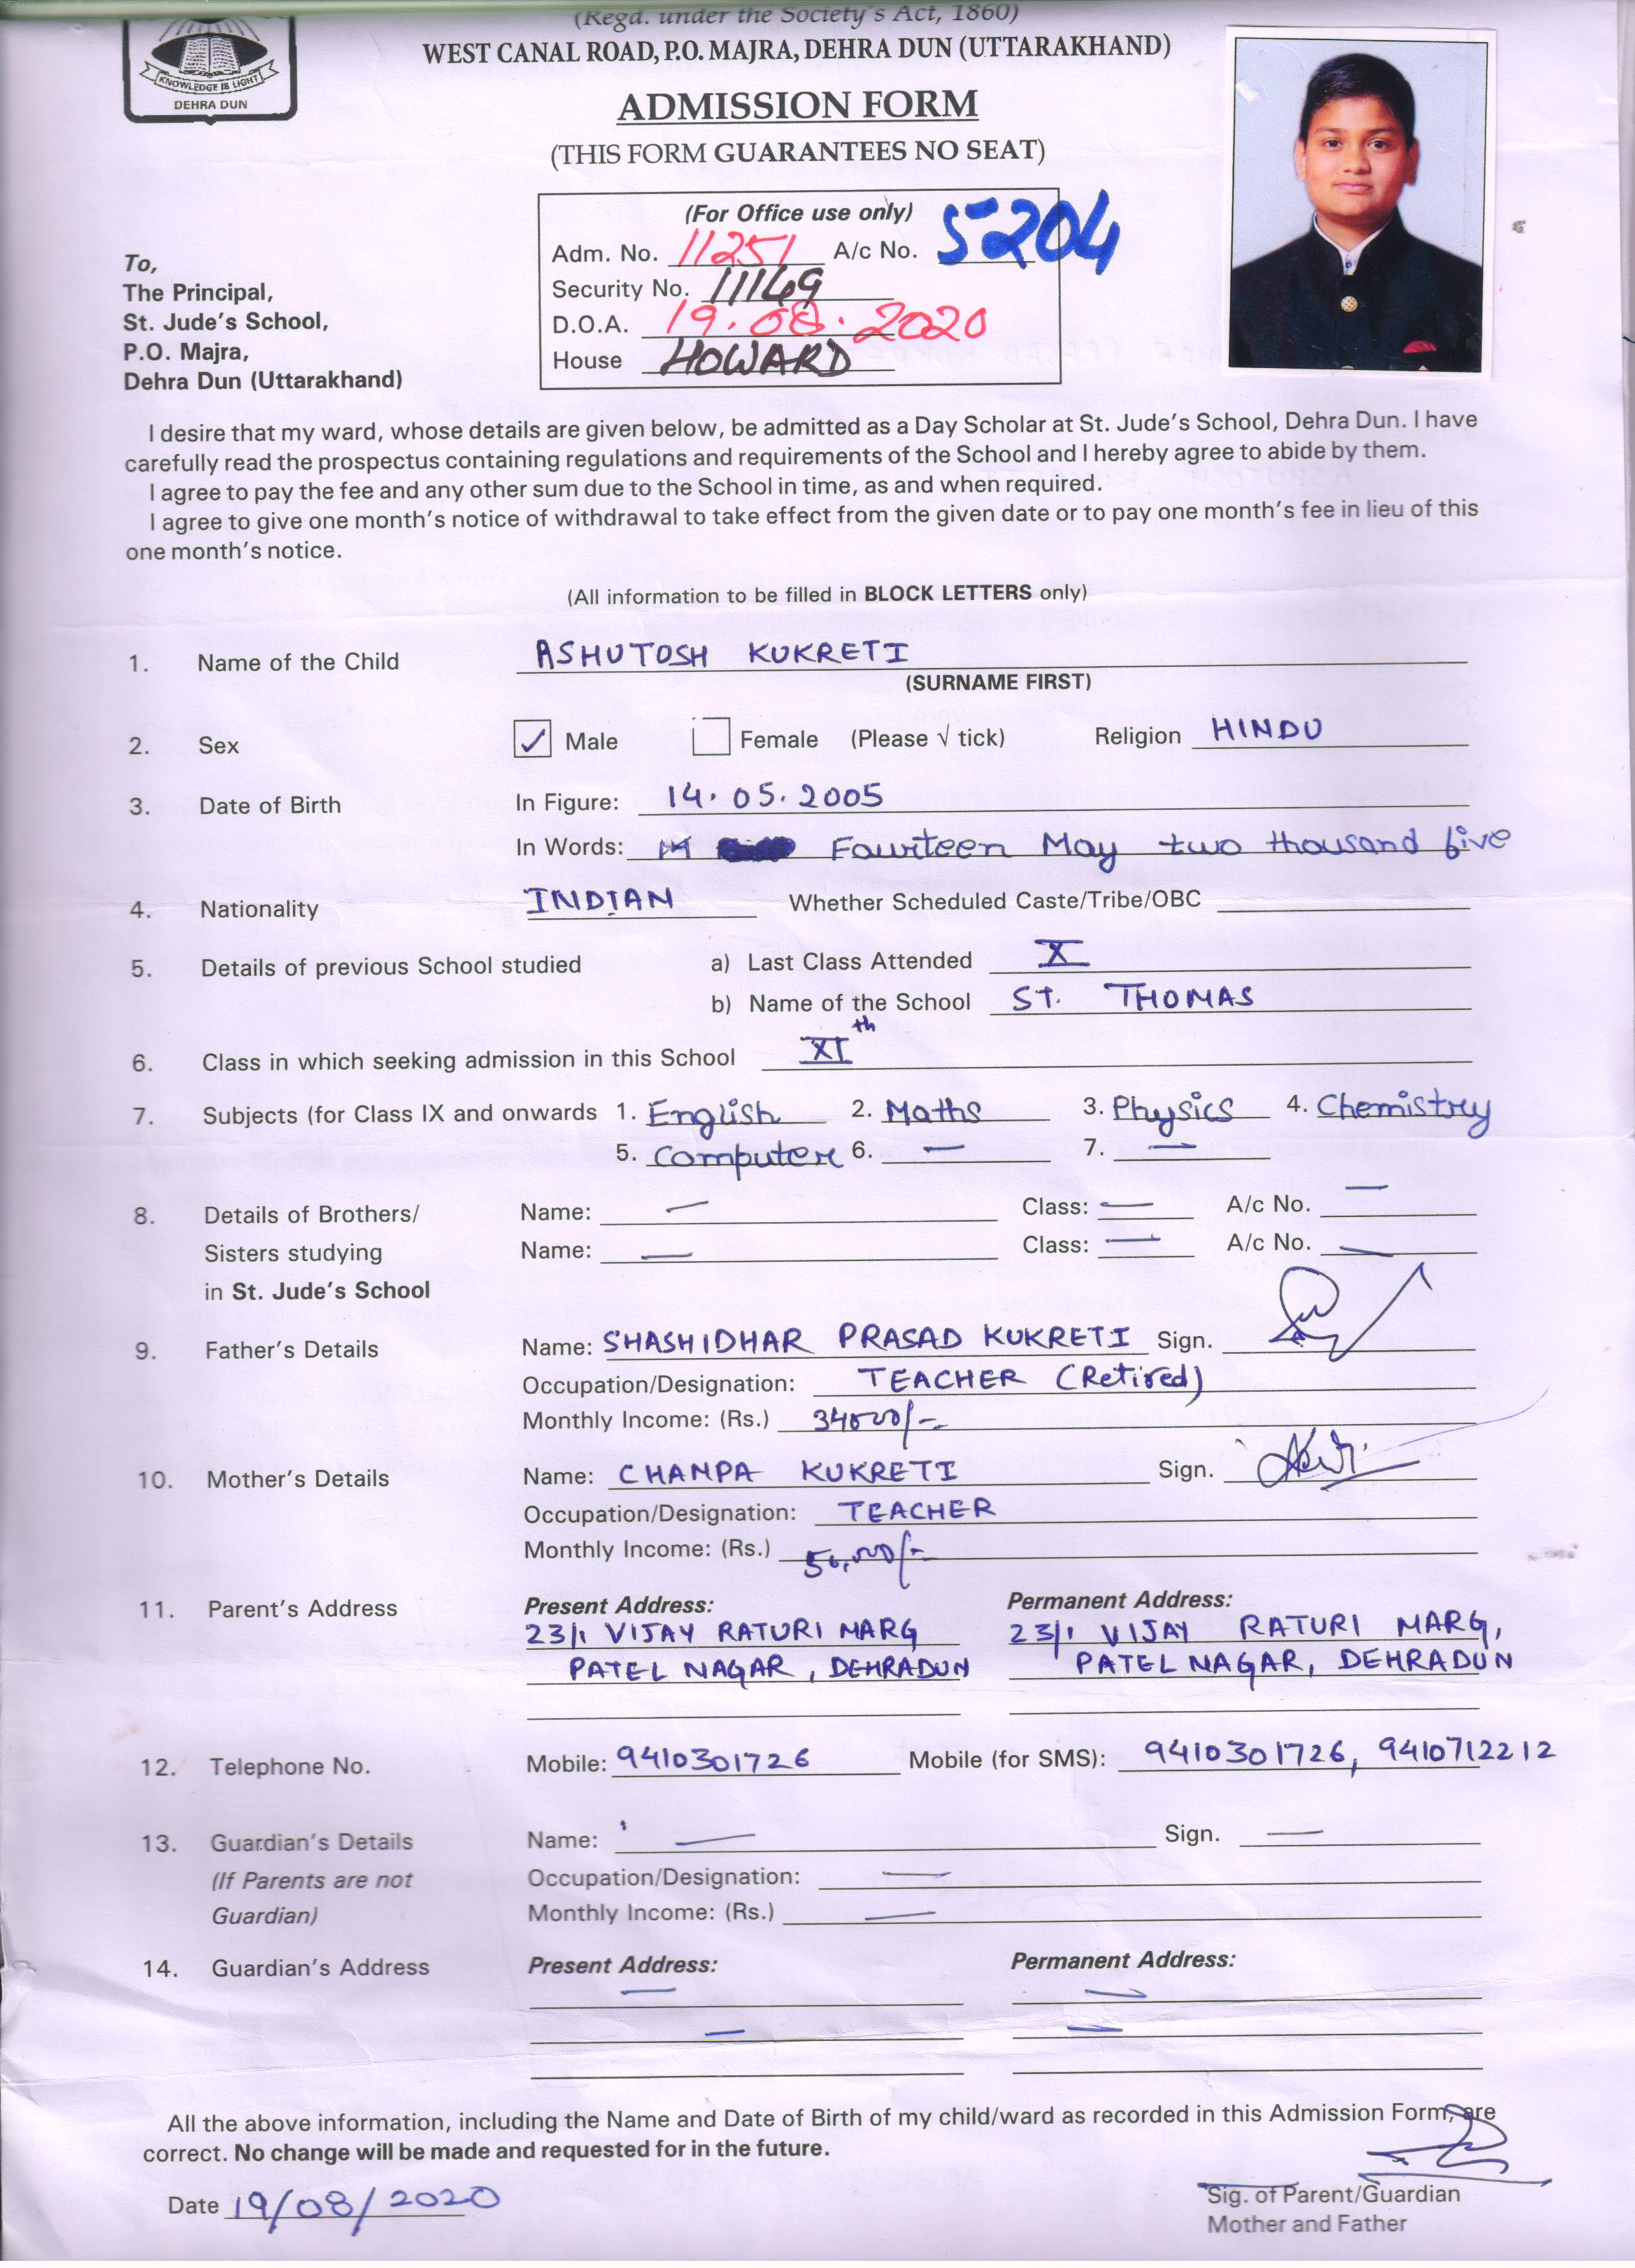 (Regd. under the Society's Act, 1860)
WEST CANAL ROAD, P.O. MAJRA, DEHRA DUN (UTTARAKHAND)
KNOWLEDGE IS LIGHT
DEHRA DUN
ADMISSION FORM
(THIS FORM GUARANTEES NO SEAT)
(For Office use only)
Adm. No. 11251 A/c No. 5204
Security No. 11149
D.O.A. 19.08.2020
House HOWARD
To,
The Principal,
St. Jude's School,
P.O. Majra,
Dehra Dun (Uttarakhand)
I desire that my ward, whose details are given below, be admitted as a Day Scholar at St. Jude's School, Dehra Dun. I have
carefully read the prospectus containing regulations and requirements of the School and I hereby agree to abide by them.
I agree to pay the fee and any other sum due to the School in time, as and when required.
I agree to give one month's notice of withdrawal to take effect from the given date or to pay one month's fee in lieu of this
one month's notice.
(All information to be filled in BLOCK LETTERS only)
1. Name of the Child ASHUTOSH KUKRETI
(SURNAME FIRST)
2. Sex ✓ Male Female (Please √ tick) Religion HINDU
3. Date of Birth In Figure: 14.05.2005
In Words: Fourteen May two thousand five
4. Nationality INDIAN Whether Scheduled Caste/Tribe/OBC
5. Details of previous School studied a) Last Class Attended X
b) Name of the School ST. THOMAS
6. Class in which seeking admission in this School XIth
7. Subjects (for Class IX and onwards 1. English 2. Maths 3. Physics 4. Chemistry
5. Computer 6. — 7. —
8. Details of Brothers/ Name: — Class: — A/c No. —
Sisters studying Name: — Class: — A/c No. —
in St. Jude's School
9. Father's Details Name: SHASHIDHAR PRASAD KUKRETI Sign.
Occupation/Designation: TEACHER (Retired)
Monthly Income: (Rs.) 34000/-
10. Mother's Details Name: CHAMPA KUKRETI Sign.
Occupation/Designation: TEACHER
Monthly Income: (Rs.) 50,000/-
11. Parent's Address Present Address: Permanent Address:
23/1 VIJAY RATURI MARG 23/1 VIJAY RATURI MARG,
PATEL NAGAR, DEHRADUN PATEL NAGAR, DEHRADUN
12. Telephone No. Mobile: 9410301726 Mobile (for SMS): 9410301726, 9410712212
13. Guardian's Details Name: — Sign. —
(If Parents are not Occupation/Designation: —
Guardian) Monthly Income: (Rs.) —
14. Guardian's Address Present Address: Permanent Address:
— —
— —
All the above information, including the Name and Date of Birth of my child/ward as recorded in this Admission Form, are
correct. No change will be made and requested for in the future.
Date 19/08/2020 Sig. of Parent/Guardian
Mother and Father